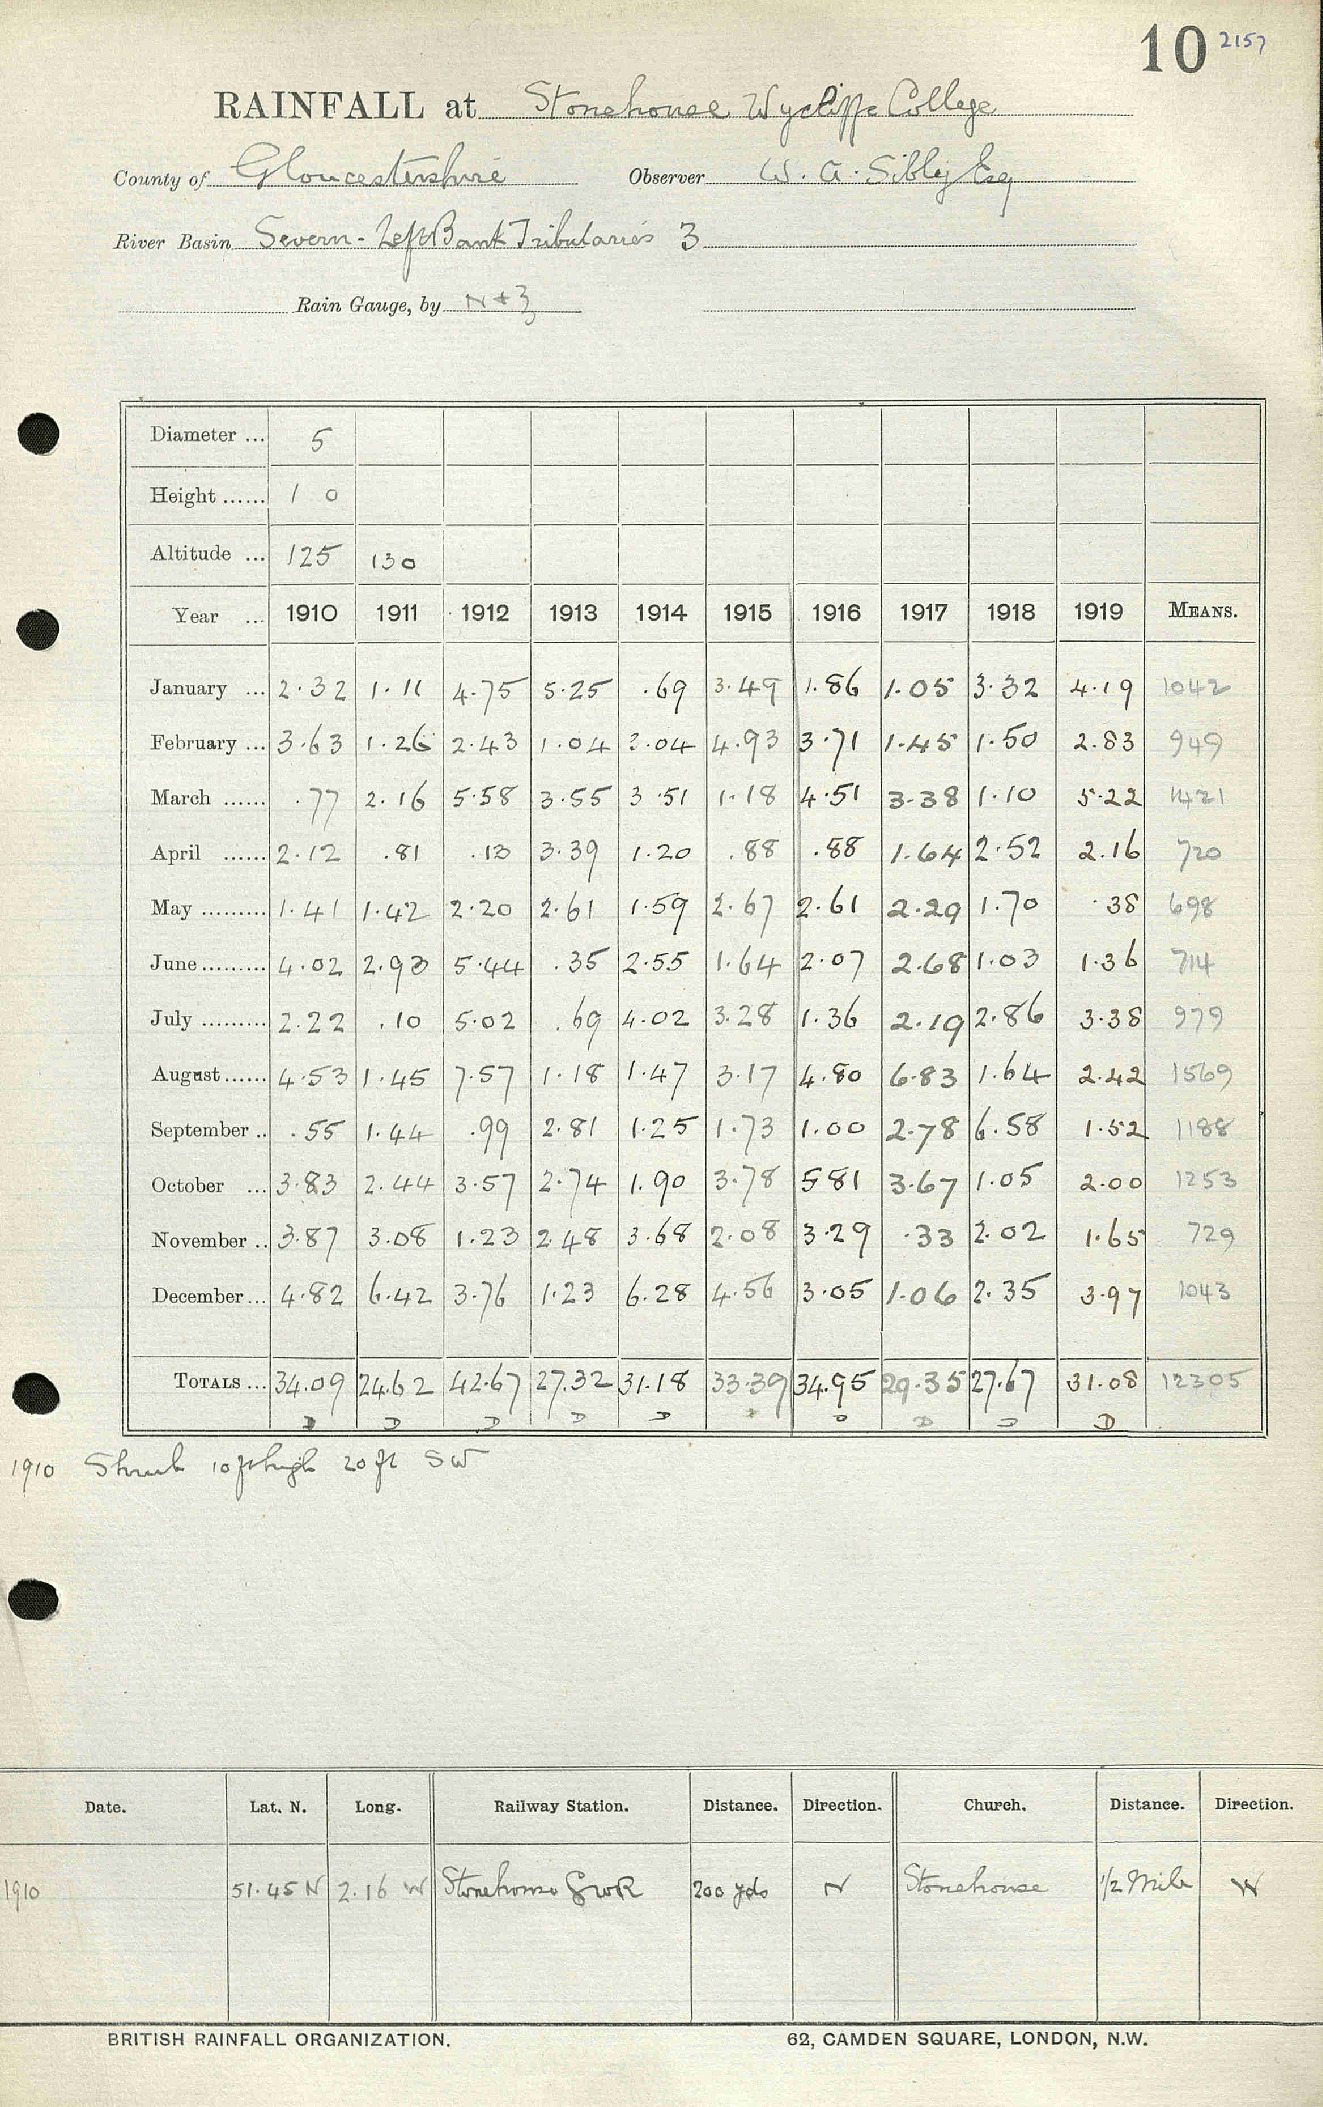 10 2157
RAINFALL at Stonehouse Wycliffe College
County of Gloucestershire Observer W. A. Sibly Esq
River Basin Severn - Left Bank Tributaries 3
Rain Gauge, by N + Z
Diameter ... 5
Height ...... 1 0
Altitude ... 125 130
Year ... 1910 1911 1912 1913 1914 1915 1916 1917 1918 1919 MEANS.
January ... 2.32 1.11 4.75 5.25 .69 3.49 1.86 1.05 3.32 4.19 1042
February ... 3.63 1.26 2.43 1.04 3.04 4.93 3.71 1.45 1.50 2.83 949
March ...... .77 2.16 5.58 3.55 3.51 1.18 4.51 3.38 1.10 5.22 1421
April ...... 2.12 .81 .13 3.39 1.20 .88 .88 1.64 2.52 2.16 720
May ......... 1.41 1.42 2.20 2.61 1.59 2.67 2.61 2.29 1.70 .38 698
June ......... 4.02 2.93 5.44 .35 2.55 1.64 2.07 2.68 1.03 1.36 714
July ......... 2.22 .10 5.02 .69 4.02 3.28 1.36 2.19 2.86 3.38 979
August ...... 4.53 1.45 7.57 1.18 1.47 3.17 4.80 6.83 1.64 2.42 1569
September .. .55 1.44 .99 2.81 1.25 1.73 1.00 2.78 6.58 1.52 1188
October ... 3.83 2.44 3.57 2.74 1.90 3.78 5.81 3.67 1.05 2.00 1253
November .. 3.87 3.08 1.23 2.48 3.68 2.08 3.29 .33 2.02 1.65 729
December ... 4.82 6.42 3.76 1.23 6.28 4.56 3.05 1.06 2.35 3.97 1043
TOTALS ... 34.09 24.62 42.67 27.32 31.18 33.39 34.95 29.35 27.67 31.08 12305
D D D D D D D D D
1910 Shrub 10 ft high 20 ft SW
Date. Lat. N. Long. Railway Station. Distance. Direction. Church. Distance. Direction.
1910 51.45 N 2.16 W Stonehouse GWR 200 yds N Stonehouse 1/2 Mile W
BRITISH RAINFALL ORGANIZATION. 62, CAMDEN SQUARE, LONDON, N.W.